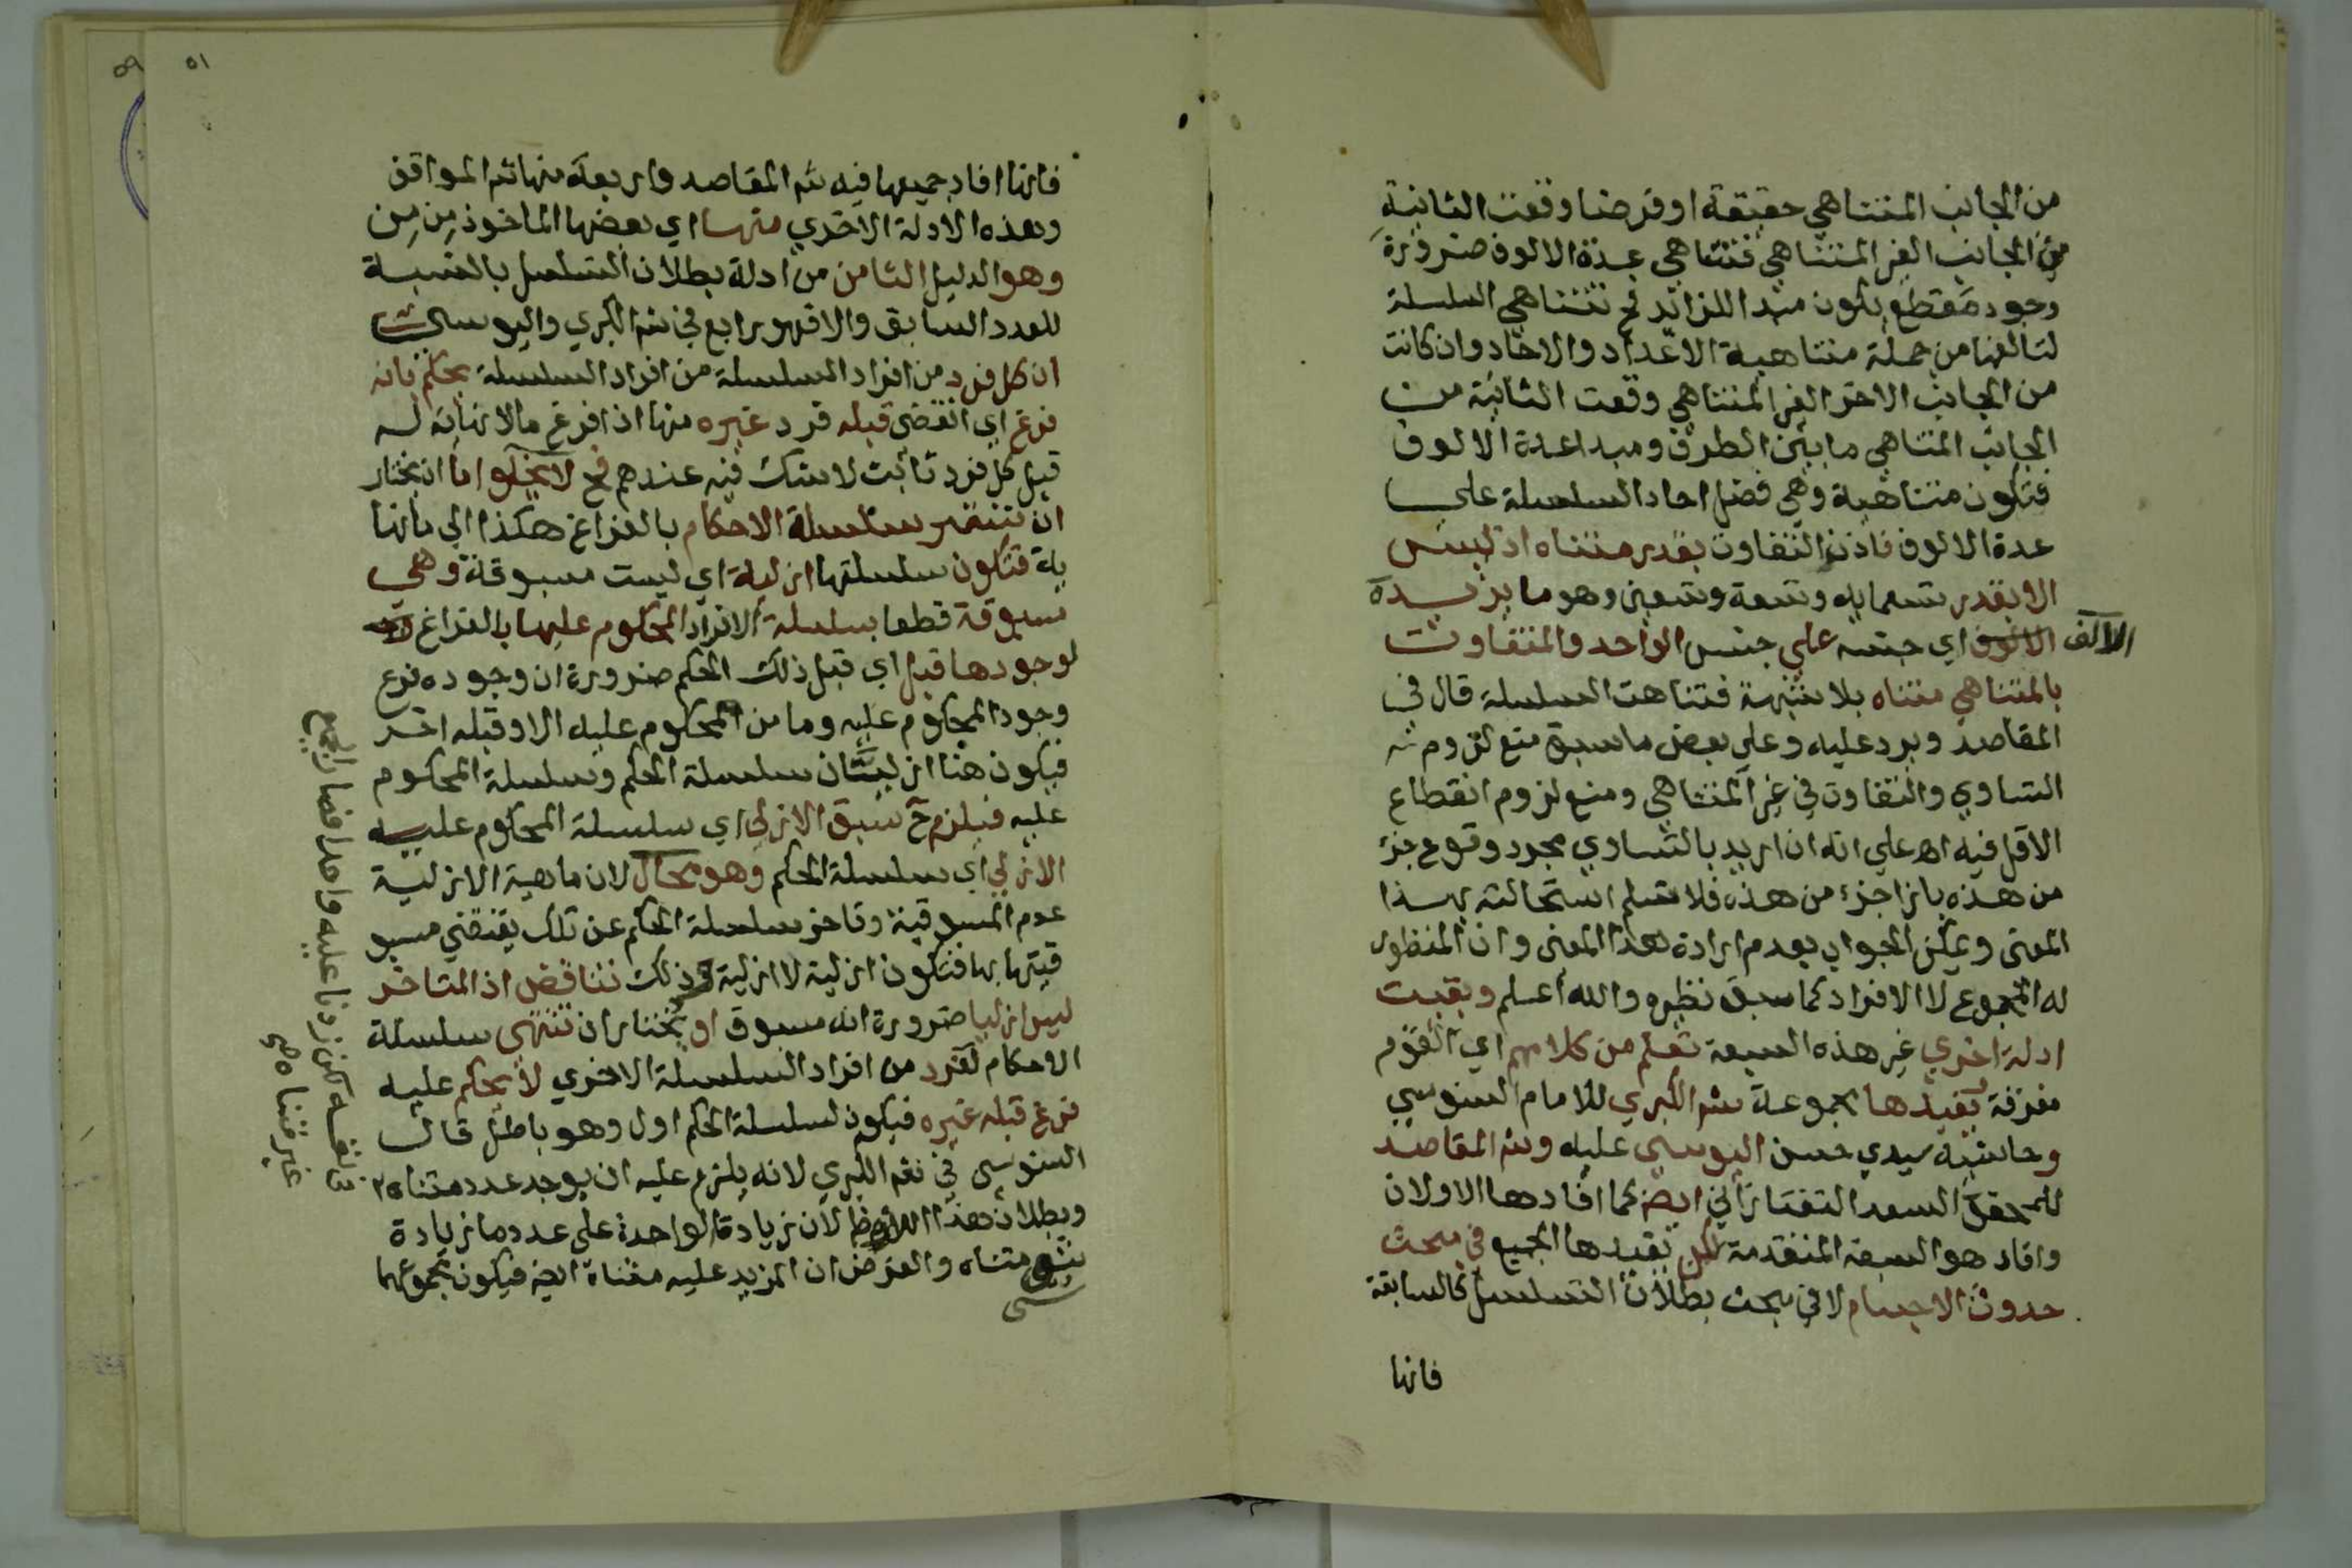 من الجانب المتناهي حقيقة او فرضا وقعت الثانية
من الجانب الغير المتناهي فتتناهي عدة الالوف ضرورة
وجود مقطع يكون مبدا للزائد فح تتناهي السلسلة
لتالفها من جملة متناهية الاعداد والاحاد وان كانت
من الجانب الاخر الغير المتناهي وقعت الثانية من
الجانب المتناهي ما بين الطرف ومبدا عدة الالوف
فتكون متناهية وهي فضل احاد السلسلة على
عدة الالوف فاذن التفاوت بقدر متناه اذ ليس
الا بقدر تسعماية وتسعة وتسعين وهو ما يزيده
الالف اي جنسه علي جنس الواحد والمتفاوت
بالمتناهي متناه بلا شبهة فتناهت السلسلة قال في
المقاصد ويرد عليه وعلي بعض ما سبق منع لزوم
التساوي والتفاوت في غير المتناهي ومنع لزوم انقطاع
الاقل فيه اه علي انه ان اريد بالتساوي مجرد وقوع جزء
من هذه بازا جزء من هذه فلا نسلم استحالته بهذا
المعنى ويمكن الجواب بعدم ارادة هذا المعنى وان المنظور
له المجموع لا الافراد كما سبق نظيره والله اعلم وبقيت
ادلة اخري غير هذه السبعة تعلم من كلامهم اي القوم
مفرقة يفيدها مجموعة شر الكبري للامام السنوسي
وحاشية سيدي حسن اليوسي عليه وشر المقاصد
للمحقق السعد التفتازاني ايضا كما افادها الاولان
وافاد هو السبعة المتقدمة لكن يفيدها الجميع في مبحث
حدوث الاجسام لا في مبحث بطلان التسلسل كالسابقة
فانها
٥١
فانها افاد جميعها فيه شر المقاصد واربعة منها شر المواقف
وهذه الادلة الاخري منها اي بعضها الماخوذ من من
وهو الدليل الثامن من ادلة بطلان التسلسل بالنسبة
للعدد السابق والا فهو رابع في شر الكبري واليوسي
ان كل فرد من افراد السلسلة من افراد السلسلة يحكم بانه
فرغ اي انقضى قبله فرد غيره منها اذ افرغ ما لا نهاية له
قبل كل فرد ثابت لا شك فيه عندهم فح لا يخلوا اما ان يختار
ان تستمر سلسلة الاحكام بالفراغ هكذا الي ما لانها
ية فتكون سلسلتها ازلية اي ليست مسبوقة وهي
مسبوقة قطعا بسلسلة الافراد المحكوم عليها بالفراغ
لوجودها قبل اي قبل ذلك الحكم ضرورة ان وجوده فرع
وجود المحكوم عليه وما من المحكوم عليه الا وقبله اخر
فيكون هنا ازليتان سلسلة الحكم وسلسلة المحكوم
عليه فيلزم ح سبق الازلي اي سلسلة المحكوم عليه
الازلي اي سلسلة الحكم وهو محال لان ماهية الازلية
عدم المسبوقية وتاخر سلسلة الحكم عن تلك يقتضي مسبو
قيتها بها فتكون ازلية لا ازلية وذلك تناقض اذ المتاخر
ليس ازليا ضرورة انه مسبوق او يختار ان تنتهي سلسلة
الاحكام لفرد من افراد السلسلة الاخري لا يحكم عليه
فرغ قبله غيره فيكون لسلسلة الحكم اول وهو باطل قال
السنوسي في شر الكبري لانه يلزم عليه ان يوجد عدد متناه
وبطلان هذا لان زيادة الواحدة على عدد ما زيادة
متناه والفرض ان المزيد عليه متناه ايضا فيكون مجموعهما
زدنا عليه واحدا فصار الجميع
غير متناه